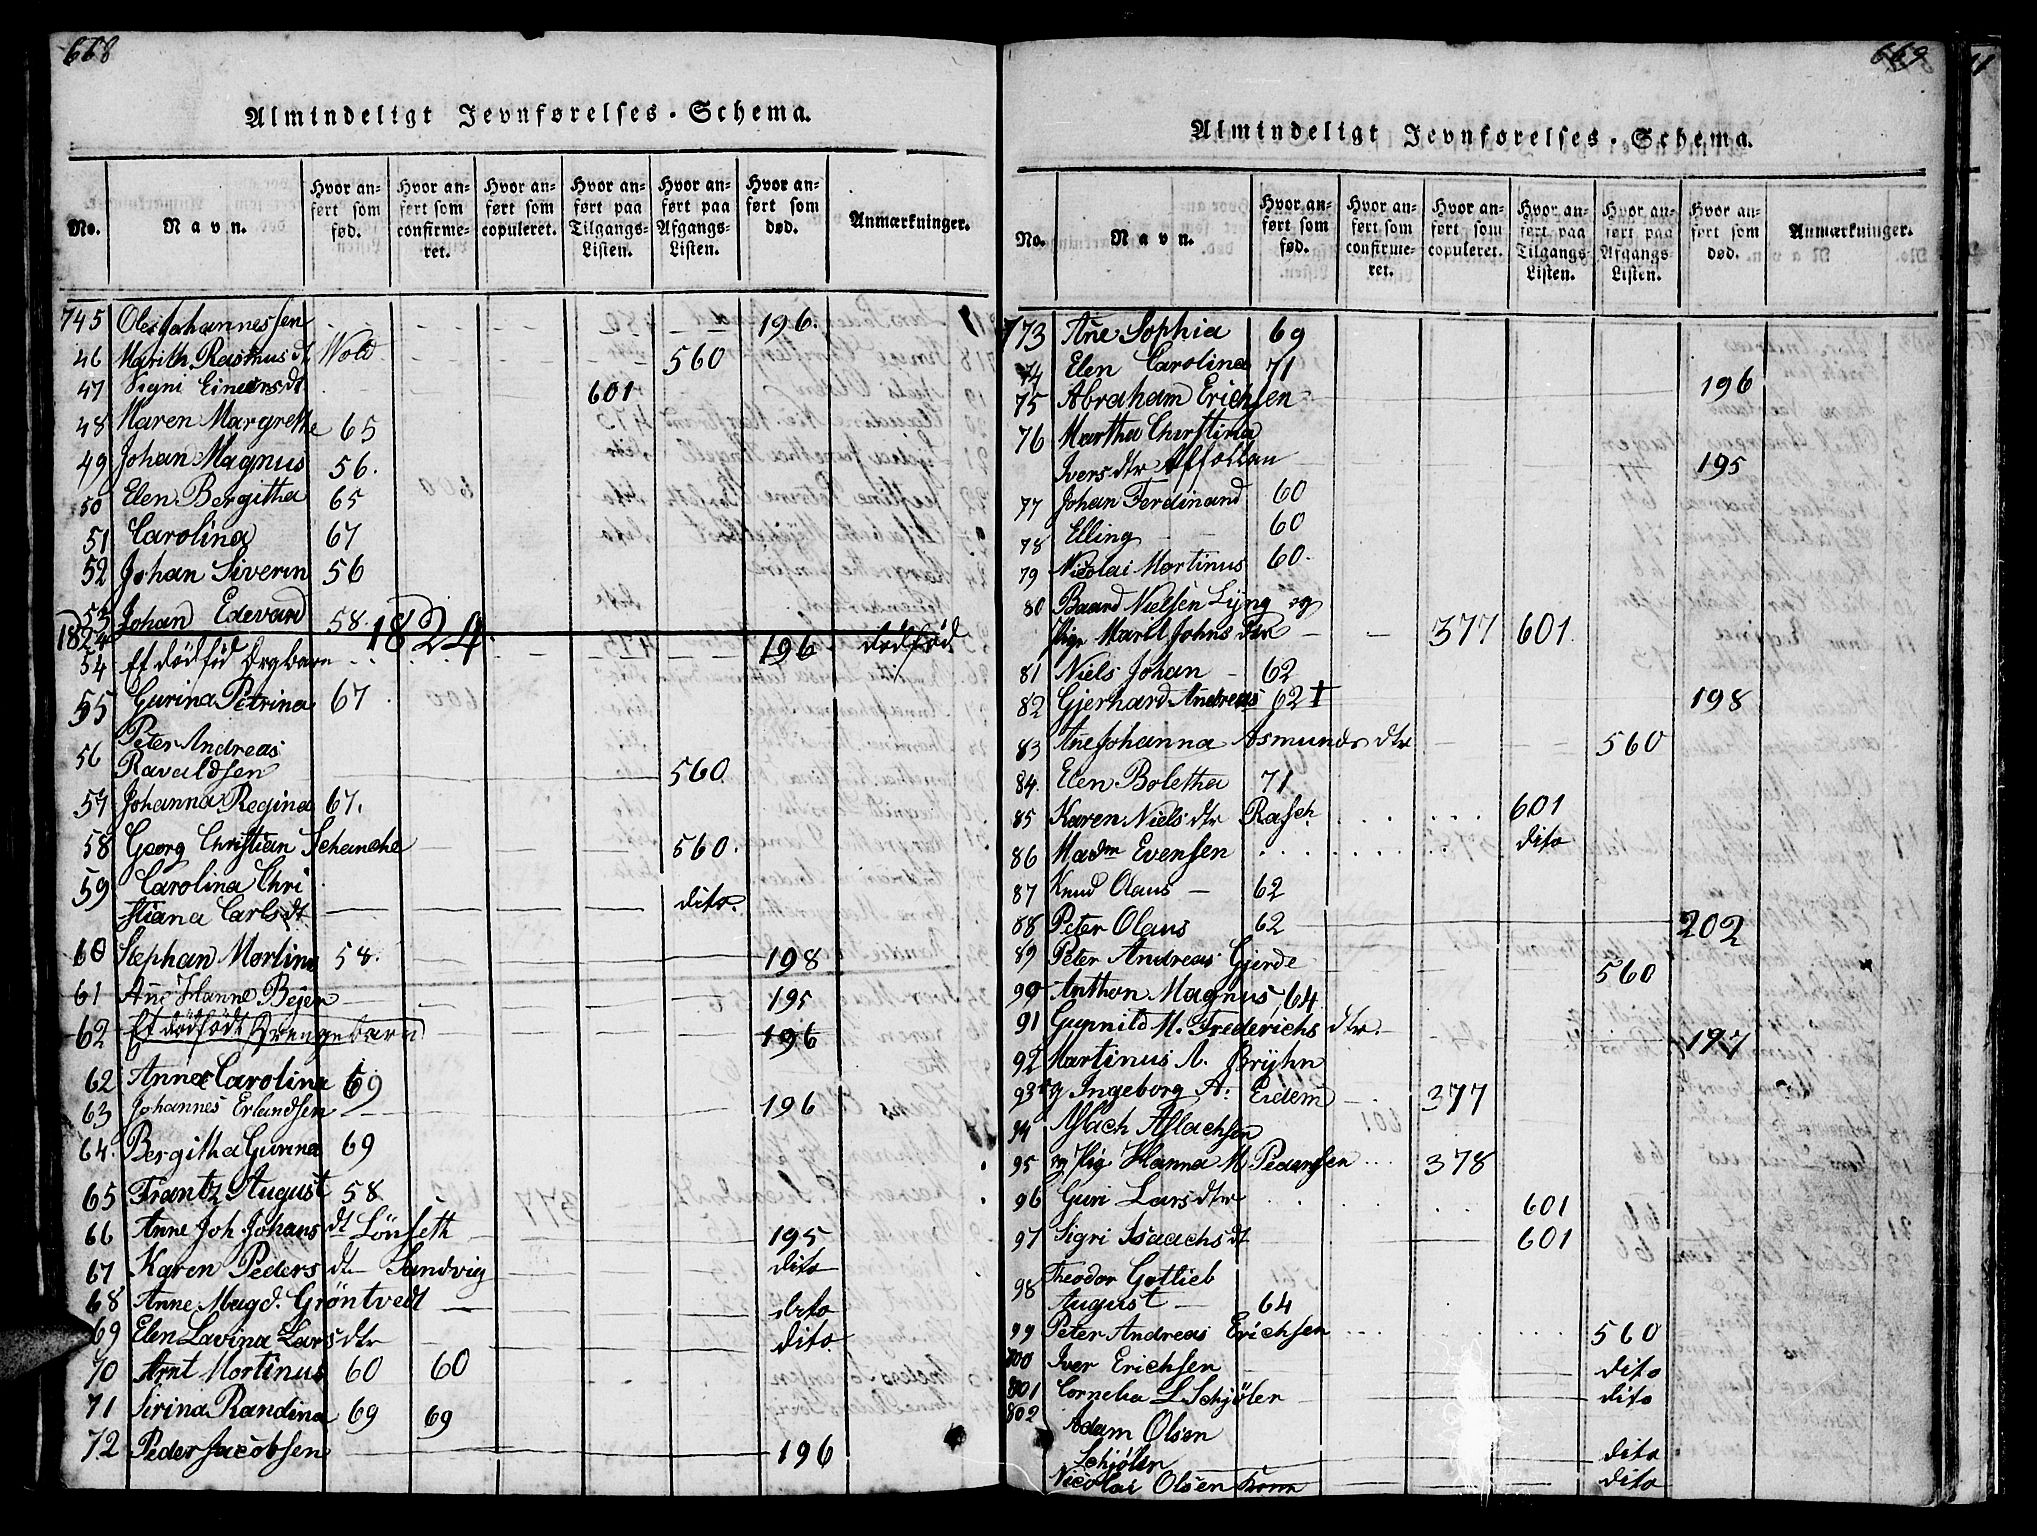 668
Almindeligt Jevnførelses-Schema.
No. Navn. Hvor anført som fød. Hvor anført som confirmeret. Hvor anført som copuleret. Hvor anført paa Tilgangs-Listen. Hvor anført paa Afgangs-Listen. Hvor anført som død. Anmærkninger.
745 Ole Johannessen 196.
46 Marith Rasmusdt Wold 560
47 Signi Einersdt 601
48 Maren Margrethe 65
49 Johan Magnus 56.
50 Elen Bergitha 65
51 Carolina 67
52 Johan Siverin 56
53 Johan Edevard 58.
1824 1824.
54 Et dödföd Drgbarn 196 dödföd.
55 Gurina Petrina 67
56 Peter Andreas
Ravaldsen 560.
57 Johanna Regina 67.
58 Georg Christian Schanche 560.
59 Carolina Chri
stiana Carlsdt dito.
60 Stephan Martinu 58. 198
61 Ane Hanne Beyer 195
62 Et dödfödt Drengebarn 196
62 Anna Carolina 69
63 Johannes Erlandsen 196
64. Bergitha Gurina 69
65 Frantz August 58
66 Anne Joh Johansdt Lönseth 195
67 Karen Peders dtr Sandvig dito
68 Anne Magd. Gröntvedt dito
69 Elen Lavina Lars dtr dito
70 Arnt Martinus 60 60
71 Sirina Randina 69 69
72 Peder Jacobsen 196
669
Almindeligt Jevnførelses-Schema.
No. Navn. Hvor anført som fød. Hvor anført som confirmeret. Hvor anført som copuleret. Hvor anført paa Tilgangs-Listen. Hvor anført paa Afgangs-Listen. Hvor anført som død. Anmærkninger.
773 Ane Sophia 69
74 Elen Carolina 71
75 Abraham Erichsen 196
76 Martha Christina
Ivers dtr 195
77 Johan Ferdinand 60
78 Elling 60
79 Nicolai Martinus 60.
80 Baard Nielsen Lyng og
Pige Marit Johns Dtr 377 601.
81 Niels Johan 62
82 Gjerhard Andreas 62 † 198
83 Ane Johanna Asmunds dtr 560
84. Elen Boletha 71
85 Karen Niels dtr Rasch 601
86 Madm Evensen dito
87 Knud Olaus 62
88 Peter Olaus 62 202
89 Peter Andreas Gjerde 560
90 Anthon Magnus 64
91 Gunnild M. Frederichs dtr. 197
92 Martinus A. Bryhn
93 og Ingeborg A: Eidem 377
94 Aslach Aslachsen
95 og Pig Hanna M Pedersen 378
96 Guri Lars dtr 601
97 Sigri Isaachsdt 601
98 Theodor Gotlieb
August 64
99 Peter Andreas Erichsen 560
800 Iver Erichsen dito
801 Cornelia L Schjöler dito
802 Adam Olsen
Schjöler dito
Nicolai Olsen dito